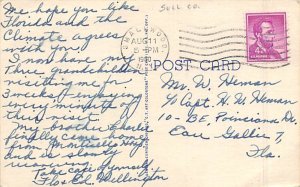 SULL CO.
Me hope you like
Florida and the
Climate agrees
with you.
I now have my
three grandchildren
visiting me for
3 weeks, enjoying
every minute of
their visit.
My brother Charlie
finally came home
from Monticello Hosp
and is slowly
recovering.
Take care of yourself
Flo & Ed Wellington
AUG 11
5 - PM
1960
POST CARD
4¢
Mrs W. Heman
% Capt H. W. Heman
10 - BE, Poinciana Dr.
Eau Gallie 7,
Fla.